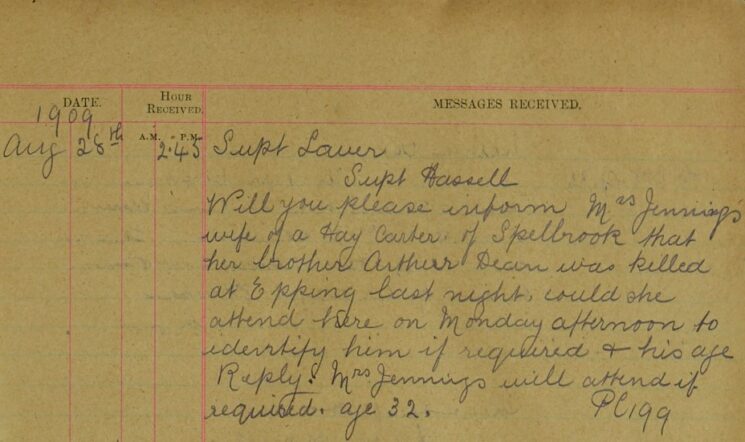 DATE. HOUR RECEIVED. MESSAGES RECEIVED.
1909 A.M. - P.M.
Aug 28th 2.45 Supt Laver
Supt Hassell
Will you please inform Mrs Jennings
wife of a Hay Carter of Spelbrook that
her brother Arthur Dean was killed
at Epping last night, could she
attend here on Monday afternoon to
identify him if required & his age
Reply. Mrs Jennings will attend if
required. age 32. PC 199